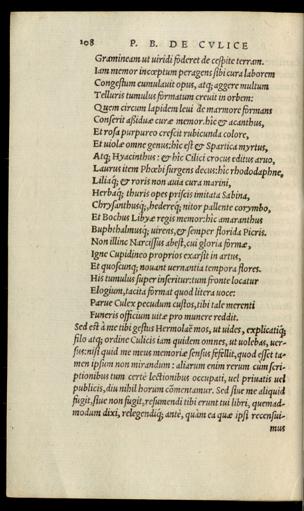 108 P. B. DE CVLICE
Gramineam ut uiridi foderet de cespite terram.
Iam memor inceptum peragens sibi cura laborem
Congestum cumulauit opus, atq; aggere multum
Telluris tumulus formatum creuit in orbem:
Quem circum lapidem leui de marmore formans
Conserit assiduæ curæ memor. hic & acanthus,
Et rosa purpureo crescit rubicunda colore,
Et uiolæ omne genus: hic est & Spartica myrtus,
Atq; Hyacinthus: & hic Cilici crocus editus aruo,
Laurus item Phœbi surgens decus: hic rhododaphne,
Liliaq; & roris non auia cura marini,
Herbaq; thuris opes priscis imitata Sabina,
Chrysanthusq;, hedereq; nitor pallente corymbo,
Et Bochus Libyæ regis memor: hic amaranthus
Buphthalmusq; uirens, & semper florida Picris.
Non illinc Narcissus abest, cui gloria formæ,
Igne Cupidineo proprios exarsit in artus,
Et quoscunq; nouant uernantia tempora flores.
His tumulus super inseritur: tum fronte locatur
Elogium, tacita format quod litera uoce:
Parue Culex pecudum custos, tibi tale merenti
Funeris officium uitæ pro munere reddit.
Sed est à me tibi gestus Hermolaë mos, ut uides, explicatiq;
filo atq; ordine Culicis iam quidem omnes, ut uolebas, uer-
sus: nisi quid me meus memoriæ sensus fefellit, quod esset ta-
men ipsum non mirandum: aliarum enim rerum cum scri-
ptionibus tum certè lectionibus occupati, uel priuatis uel
publicis, diu nihil horum cōmentamur. Sed siue me aliquid
fugit, siue non fugit, resumendi tibi erunt tui libri, quemad-
modum dixi, relegendiq; antè, quàm ea quæ ipsi recensui-
mus